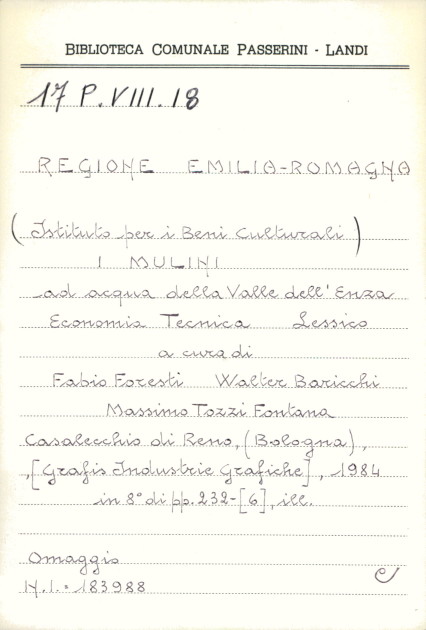 BIBLIOTECA COMUNALE PASSERINI - LANDI
17 P. VIII. 18
REGIONE EMILIA-ROMAGNA
(Istituto per i Beni Culturali)
I MULINI
ad acqua della Valle dell'Enza
Economia Tecnica Lessico
a cura di
Fabio Foresti Walter Baricchi
Massimo Tozzi Fontana
Casalecchio di Reno, (Bologna),
,[Grafis Industrie Grafiche], 1984
in 8° di pp. 232-[6], ill.
Omaggio
N.I. = 183988